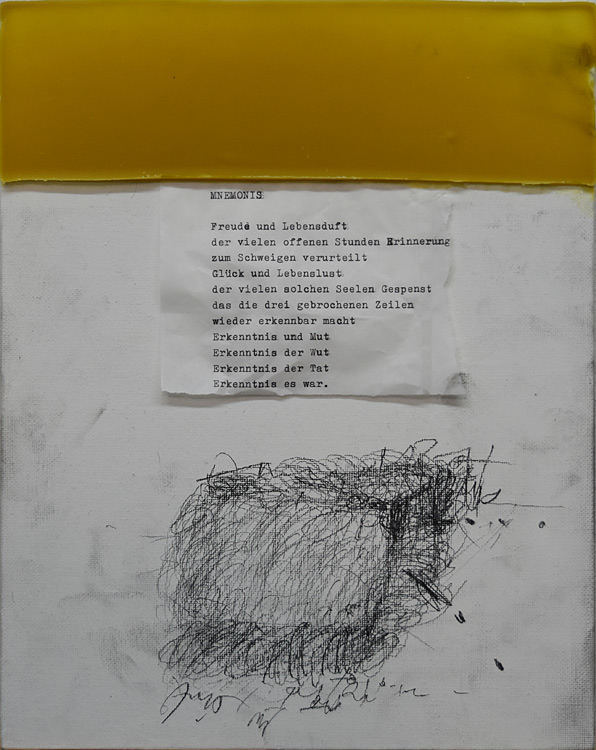 MNEMONIS
Freude und Lebensduft
der vielen offenen Stunden Erinnerung
zum Schweigen verurteilt
Glück und Lebenslust
der vielen solchen Seelen Gespenst
das die drei gebrochenen Zeilen
wieder erkennbar macht
Erkenntnis und Mut
Erkenntnis der Wut
Erkenntnis der Tat
Erkenntnis es war.